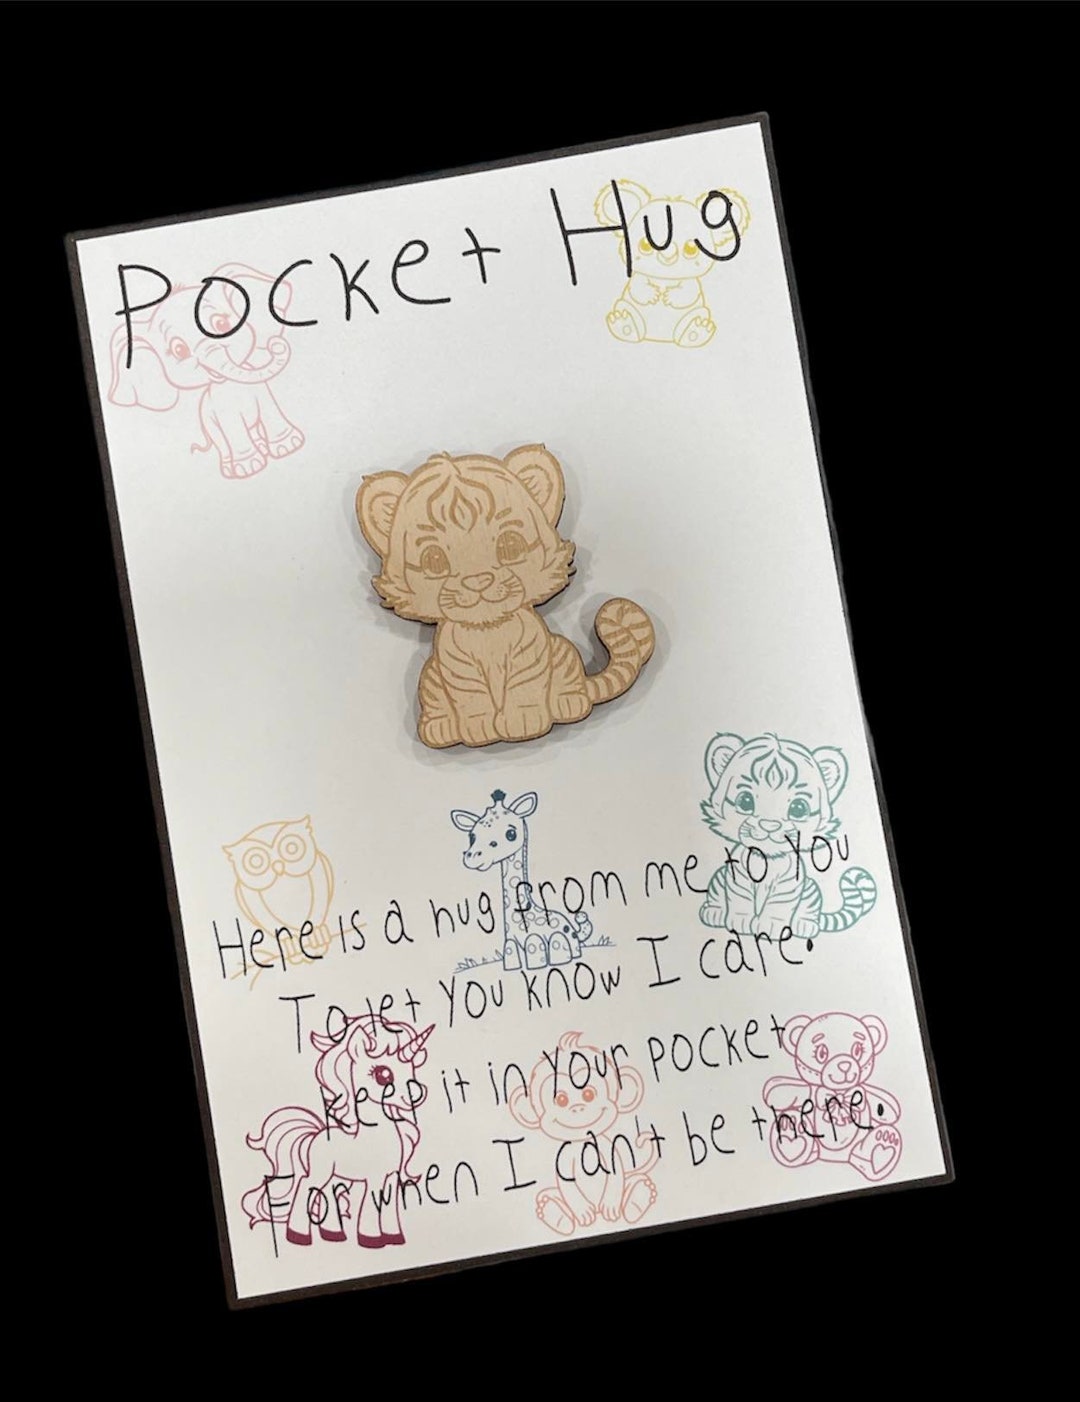 Pocket Hug
Here is a hug from me to you
To let you know I care.
keep it in your pocket
For when I can't be there.